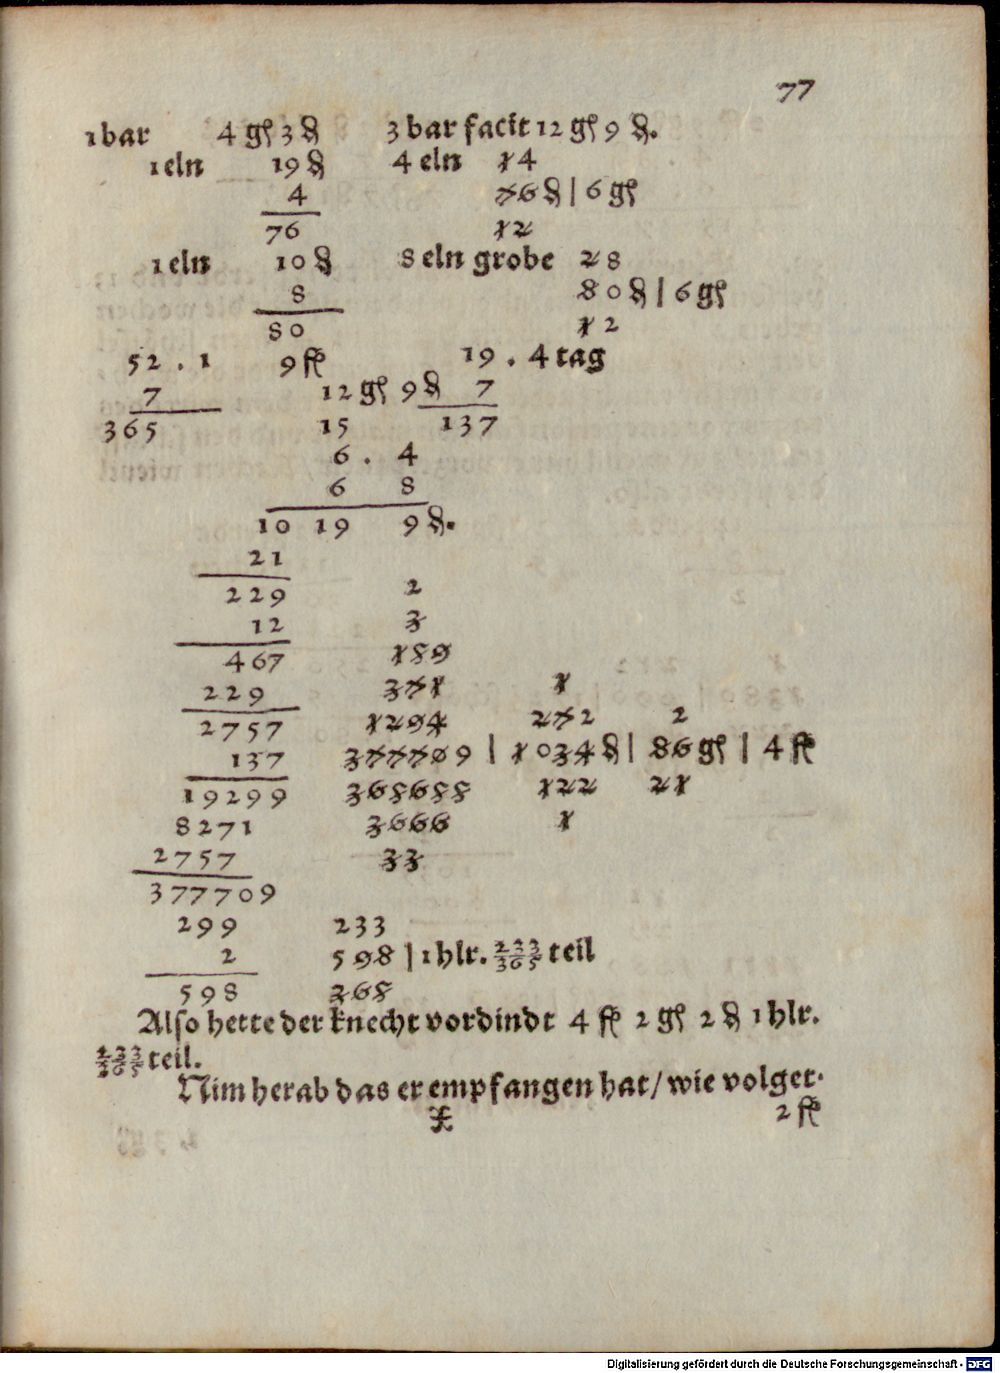 77
1 bar 4 gſ 3 ₰ 3 bar facit 12 gſ 9 ₰.
1 eln 19 ₰ 4 eln 14
4 76 ₰ | 6 gſ
76 12
1 eln 10 ₰ 8 eln grobe 28
8 80 ₰ | 6 gſ
80 12
52 . 1 9 fl 19 . 4 tag
7 12 gſ 9 ₰ 7
365 15 137
6 . 4
6 8
10 19 9 ₰.
21
229 2
12 3
467 189
229 371 1
2757 1294 272 2
137 377709 | 1034 ₰ | 86 gſ | 4 fl
19299 365655 122 21
8271 3666 1
2757 33
377709
299 233
2 598 | 1 hlr. 233/365 teil
598 365
Also hette der knecht vordindt 4 fl 2 gſ 2 ₰ 1 hlr.
233/365 teil.
Nim herab das er empfangen hat/ wie volget.
2 fl
Digitalisierung gefördert durch die Deutsche Forschungsgemeinschaft - DFG